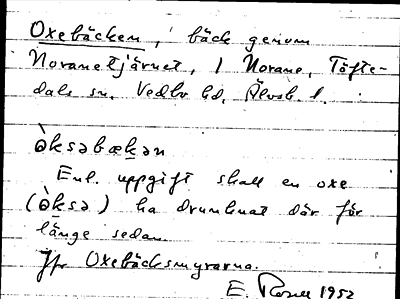 Oxebäcken, bäck genom
Noranetjärnet, i Norane, Töfte-
dals sn. Vedbo hd. Älvsb. l.
òksəbækən
Enl. uppgift skall en oxe
(òksə) ha drunknat där för
länge sedan.
Jfr Oxebäcksmyrarna.
E. 1952